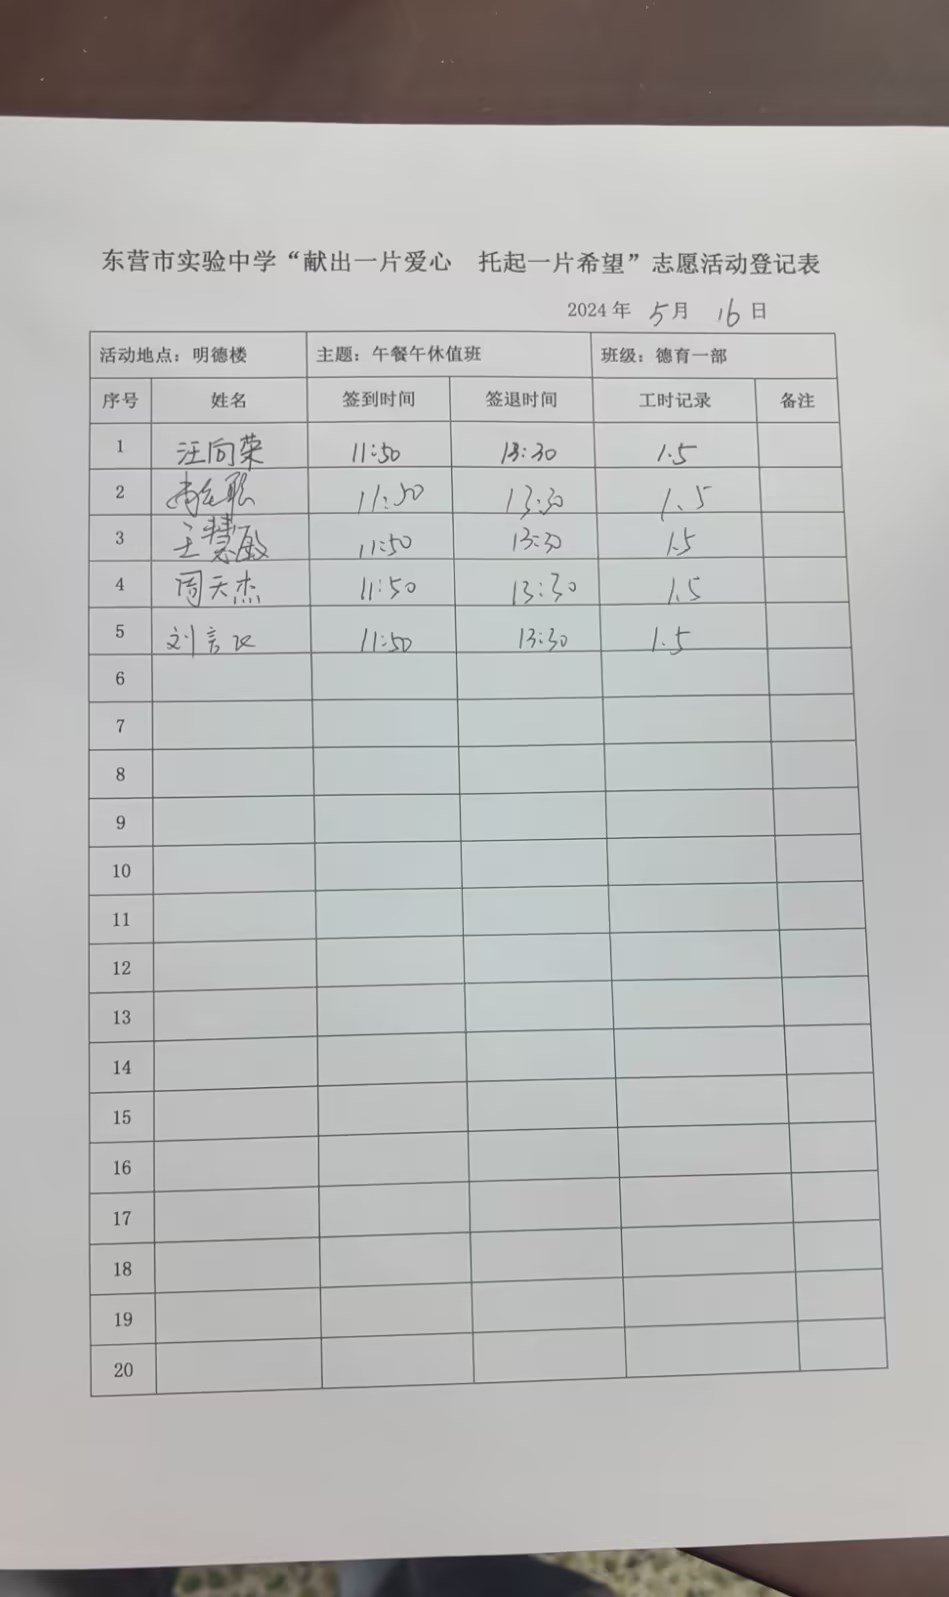 东营市实验中学“献出一片爱心 托起一片希望”志愿活动登记表
2024 年 5 月 16 日
活动地点：明德楼 主题：午餐午休值班 班级：德育一部
序号 姓名 签到时间 签退时间 工时记录 备注
1 汪向荣 11:50 13:30 1.5
2 11:50 13:30 1.5
3 王慧敏 11:50 13:30 1.5
4 周天杰 11:50 13:30 1.5
5 刘言 11:50 13:30 1.5
6
7
8
9
10
11
12
13
14
15
16
17
18
19
20